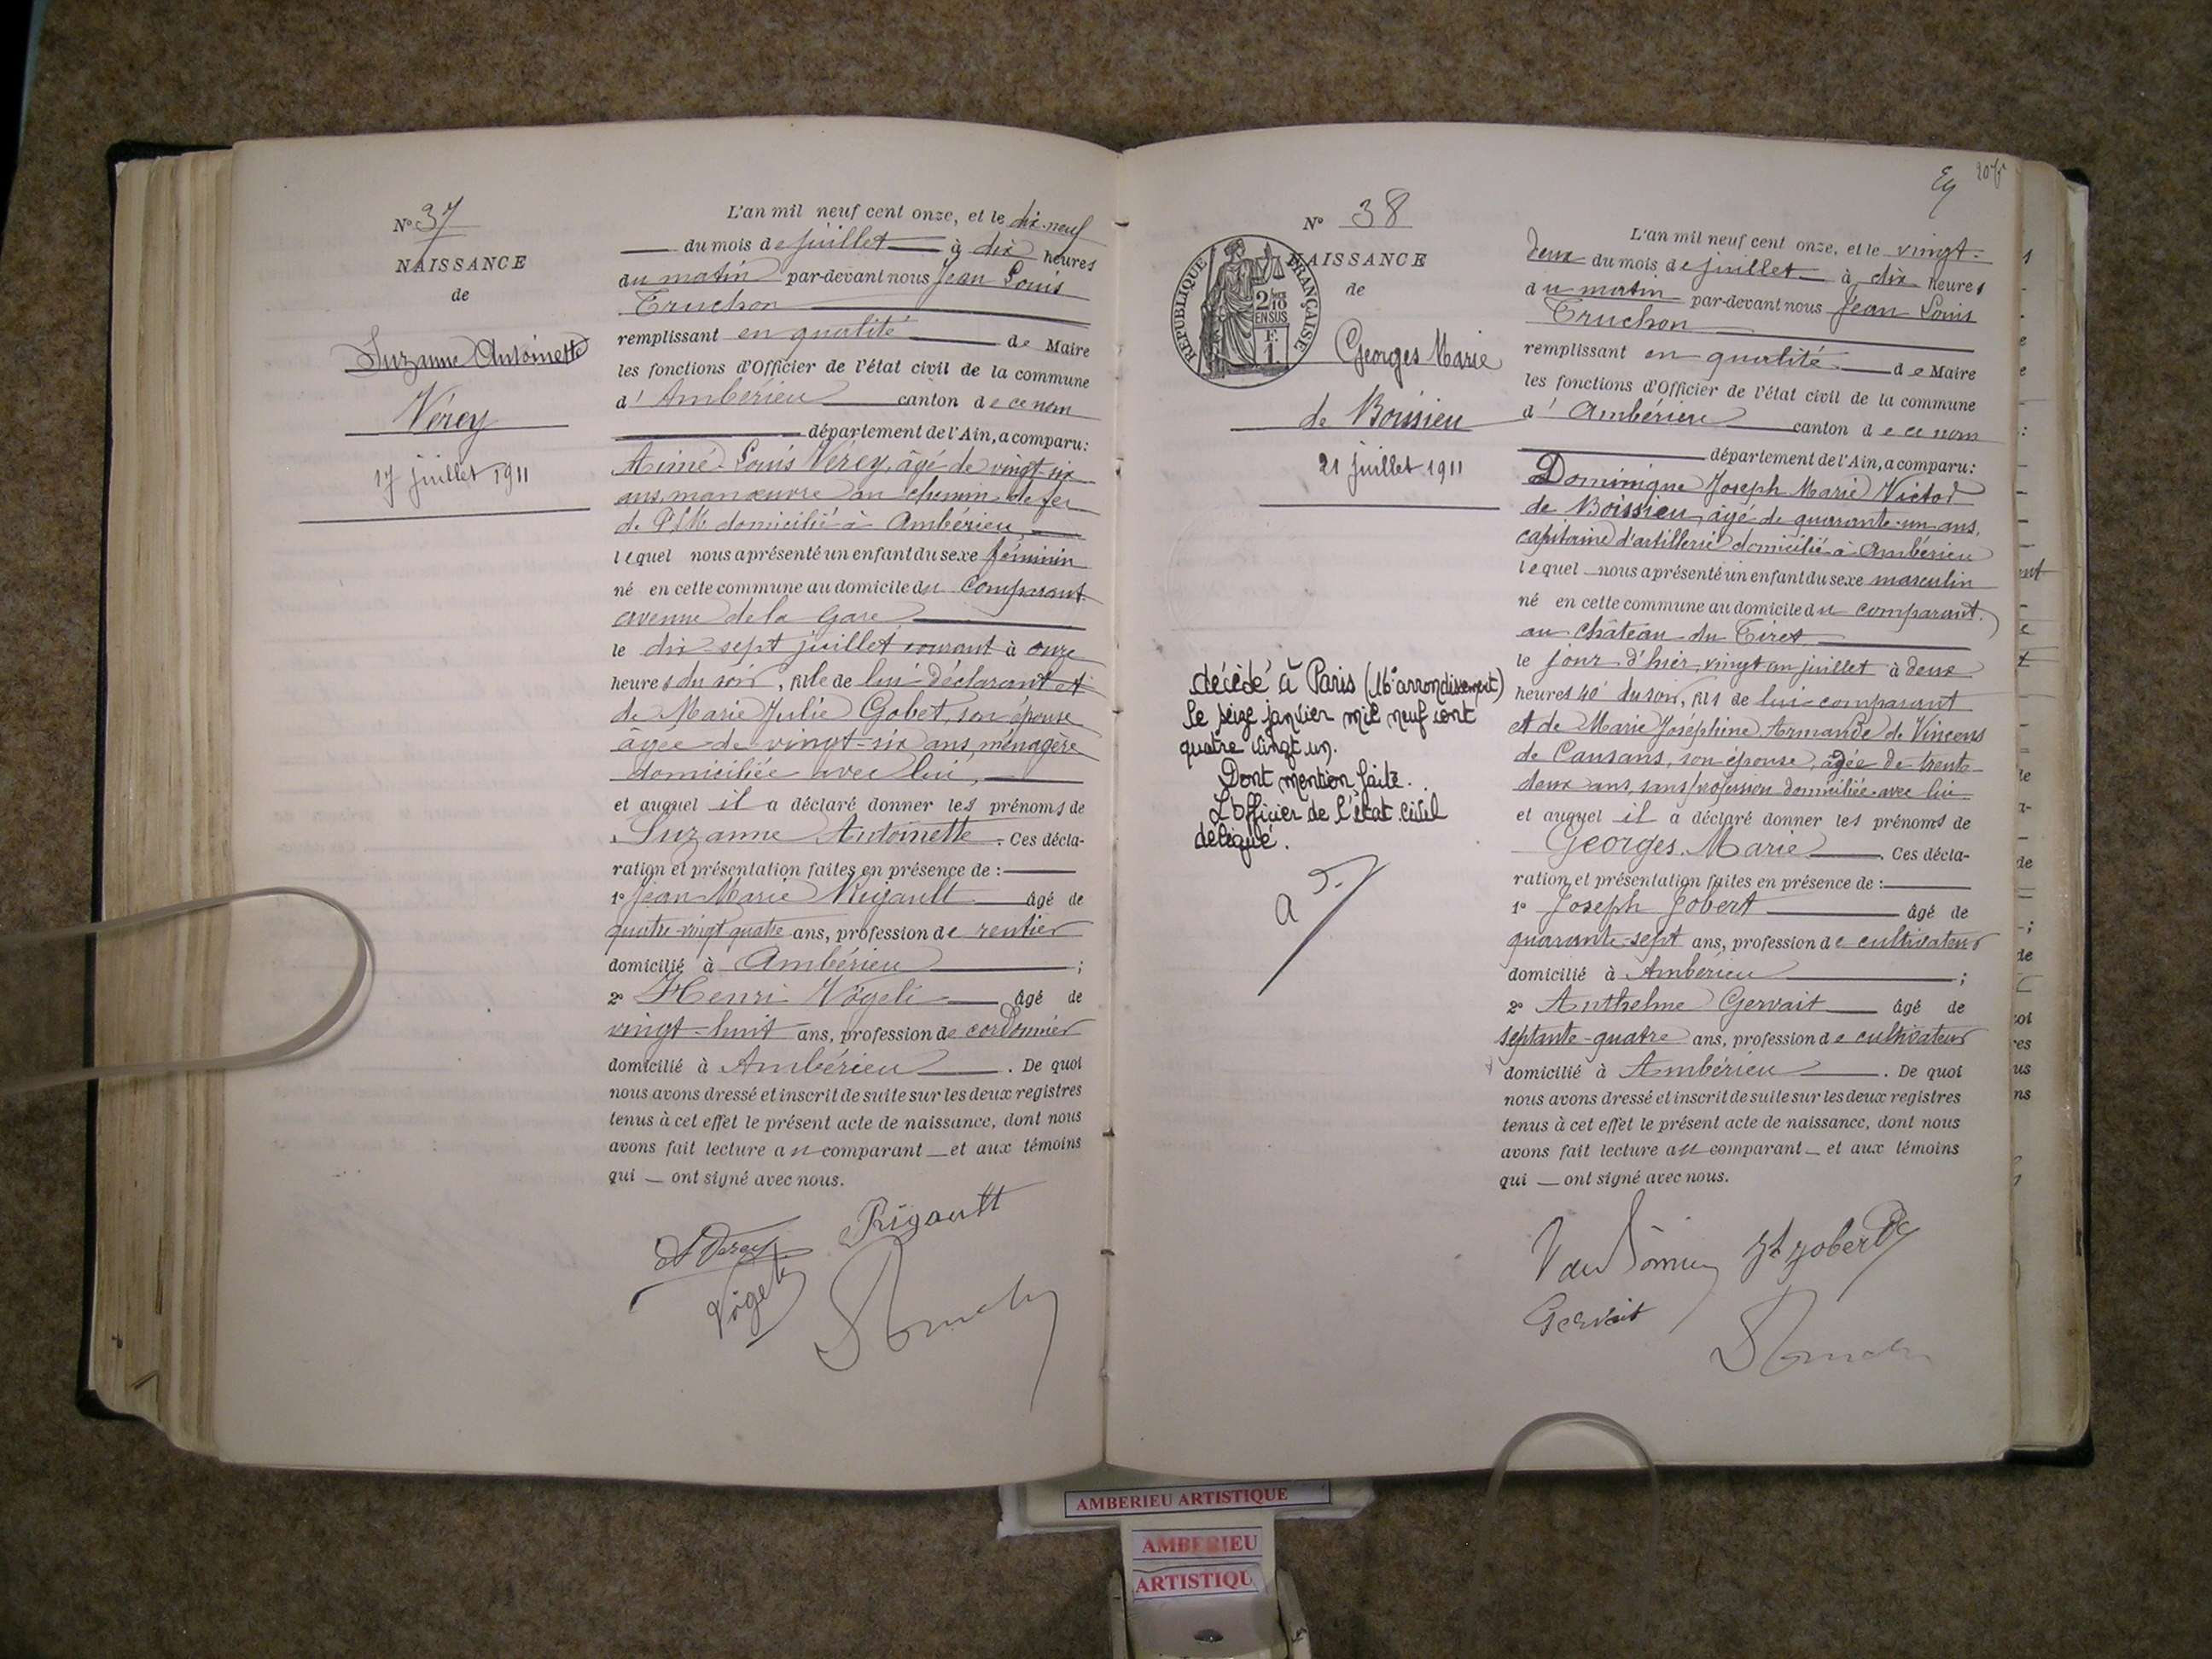 N° 37
NAISSANCE
de
Suzanne Antoinette
Vérey
17 juillet 1911
L'an mil neuf cent onze, et le dix-neuf
du mois de juillet à dix heures
du matin par-devant nous Jean Louis
Truchon
remplissant en qualité de Maire
les fonctions d'Officier de l'état civil de la commune
d'Ambérieu canton de ce nom
département de l'Ain, a comparu:
Aimé-Louis Vérey, âgé de vingt-six
ans, manœuvre au chemin de fer
de PLM domicilié à Ambérieu,
lequel nous a présenté un enfant du sexe féminin
né en cette commune au domicile du comparant
avenue de la Gare
le dix sept juillet courant à onze
heures du soir, fille de lui déclarant et
de Marie Julie Gobet, son épouse
âgée de vingt-six ans, ménagère
domiciliée avec lui,
et auquel il a déclaré donner les prénoms de
Suzanne Antoinette. Ces décla-
ration et présentation faites en présence de :
1° Jean Marie Rigault âgé de
quatre-vingt quatre ans, profession de rentier
domicilié à Ambérieu ;
2° Henri Vögeli âgé de
vingt-huit ans, profession de cordonnier
domicilié à Ambérieu. De quoi
nous avons dressé et inscrit de suite sur les deux registres
tenus à cet effet le présent acte de naissance, dont nous
avons fait lecture au comparant et aux témoins
qui ont signé avec nous.
Rigault
Vögeli
207
N° 38
NAISSANCE
de
RÉPUBLIQUE FRANÇAISE
2/10 EN SUS
F. 1
Georges Marie
de Boissieu
21 juillet 1911
décédé à Paris (16e arrondissement)
le seize janvier mil neuf cent
quatre vingt un.
Dont mention faite.
L'Officier de l'état civil
délégué.
L'an mil neuf cent onze, et le vingt-
deux du mois de juillet à dix heures
du matin par-devant nous Jean Louis
Truchon
remplissant en qualité de Maire
les fonctions d'Officier de l'état civil de la commune
d'Ambérieu canton de ce nom
département de l'Ain, a comparu:
Dominique Joseph Marie Victor
de Boissieu, âgé de quarante-un ans,
capitaine d'artillerie domicilié à Ambérieu
lequel nous a présenté un enfant du sexe masculin
né en cette commune au domicile du comparant.
au château du Tiret
le jour d'hier, vingt un juillet à deux
heures 40' du soir, fils de lui comparant
et de Marie Joséphine Armande de Vincens
de Causans, son épouse, âgée de trente
deux ans, sans profession domiciliée avec lui
et auquel il a déclaré donner les prénoms de
Georges Marie. Ces décla-
ration et présentation faites en présence de :
1° Joseph Jobert âgé de
quarante-sept ans, profession de cultivateur
domicilié à Ambérieu ;
2° Anthelme Gervait âgé de
septante-quatre ans, profession de cultivateur
domicilié à Ambérieu. De quoi
nous avons dressé et inscrit de suite sur les deux registres
tenus à cet effet le présent acte de naissance, dont nous
avons fait lecture au comparant et aux témoins
qui ont signé avec nous.
Gervait
AMBERIEU ARTISTIQUE
AMBERIEU
ARTISTIQU